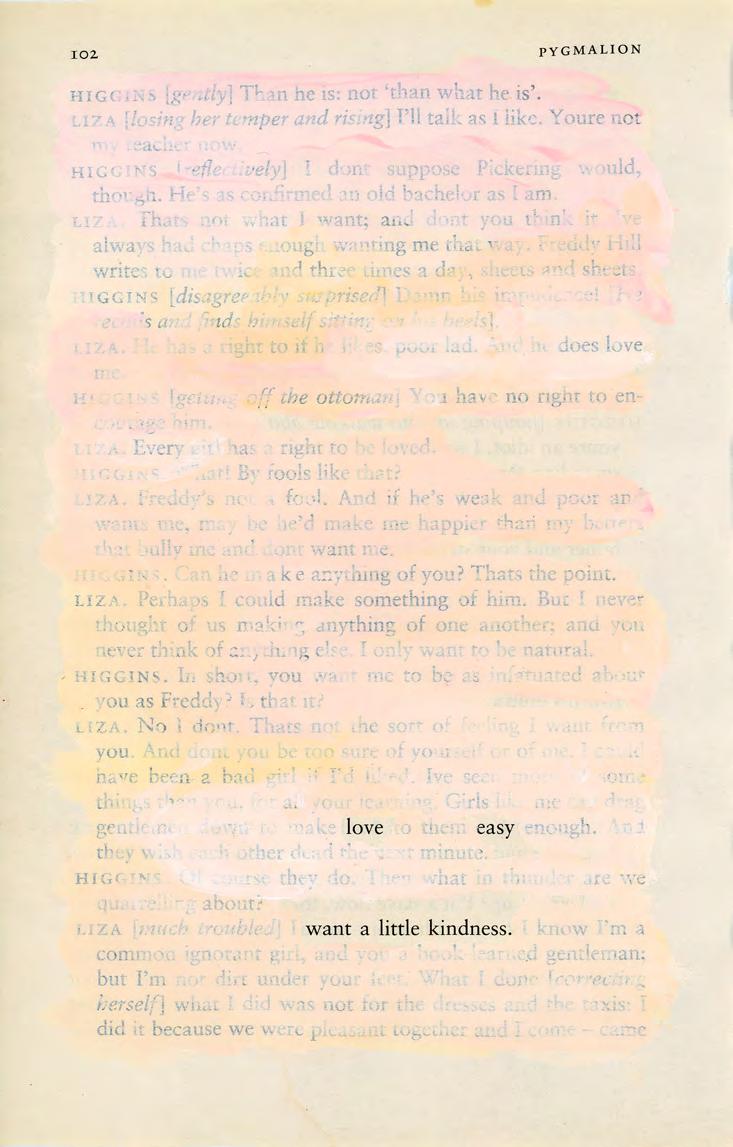 102
PYGMALION
HIGGINS [gently] Than he is: not ‘than what he is’.
LIZA [losing her temper and rising] I’ll talk as I like. Youre not
my teacher now.
HIGGINS [reflectively] I dont suppose Pickering would,
though. He’s as confirmed an old bachelor as I am.
LIZA. Thats not what I want; and dont you think it. Ive
always had chaps enough wanting me that way. Freddy Hill
writes to me twice and three times a day, sheets and sheets.
HIGGINS [disagreeably surprised] Damn his impudence! [He
recoils and finds himself sitting on his heels].
LIZA. He has a right to if he likes, poor lad. And he does love
me.
HIGGINS [getting off the ottoman] You have no right to en-
courage him.
LIZA. Every girl has a right to be loved.
HIGGINS. What! By fools like that?
LIZA. Freddy’s not a fool. And if he’s weak and poor and
wants me, may be he’d make me happier than my betters
that bully me and dont want me.
HIGGINS. Can he make anything of you? Thats the point.
LIZA. Perhaps I could make something of him. But I never
thought of us making anything of one another; and you
never think of anything else. I only want to be natural.
HIGGINS. In short, you want me to be as infatuated about
you as Freddy? Is that it?
LIZA. No I dont. Thats not the sort of feeling I want from
you. And dont you be too sure of yourself or of me. I could
have been a bad girl if I’d liked. Ive seen more of some
things than you, for all your learning. Girls like me can drag
gentlemen down to make love to them easy enough. And
they wish each other dead the next minute.
HIGGINS. Of course they do. Then what in thunder are we
quarrelling about?
LIZA [much troubled] I want a little kindness. I know I’m a
common ignorant girl, and you a book-learned gentleman;
but I’m not dirt under your feet. What I done [correcting
herself] what I did was not for the dresses and the taxis: I
did it because we were pleasant together and I come – came